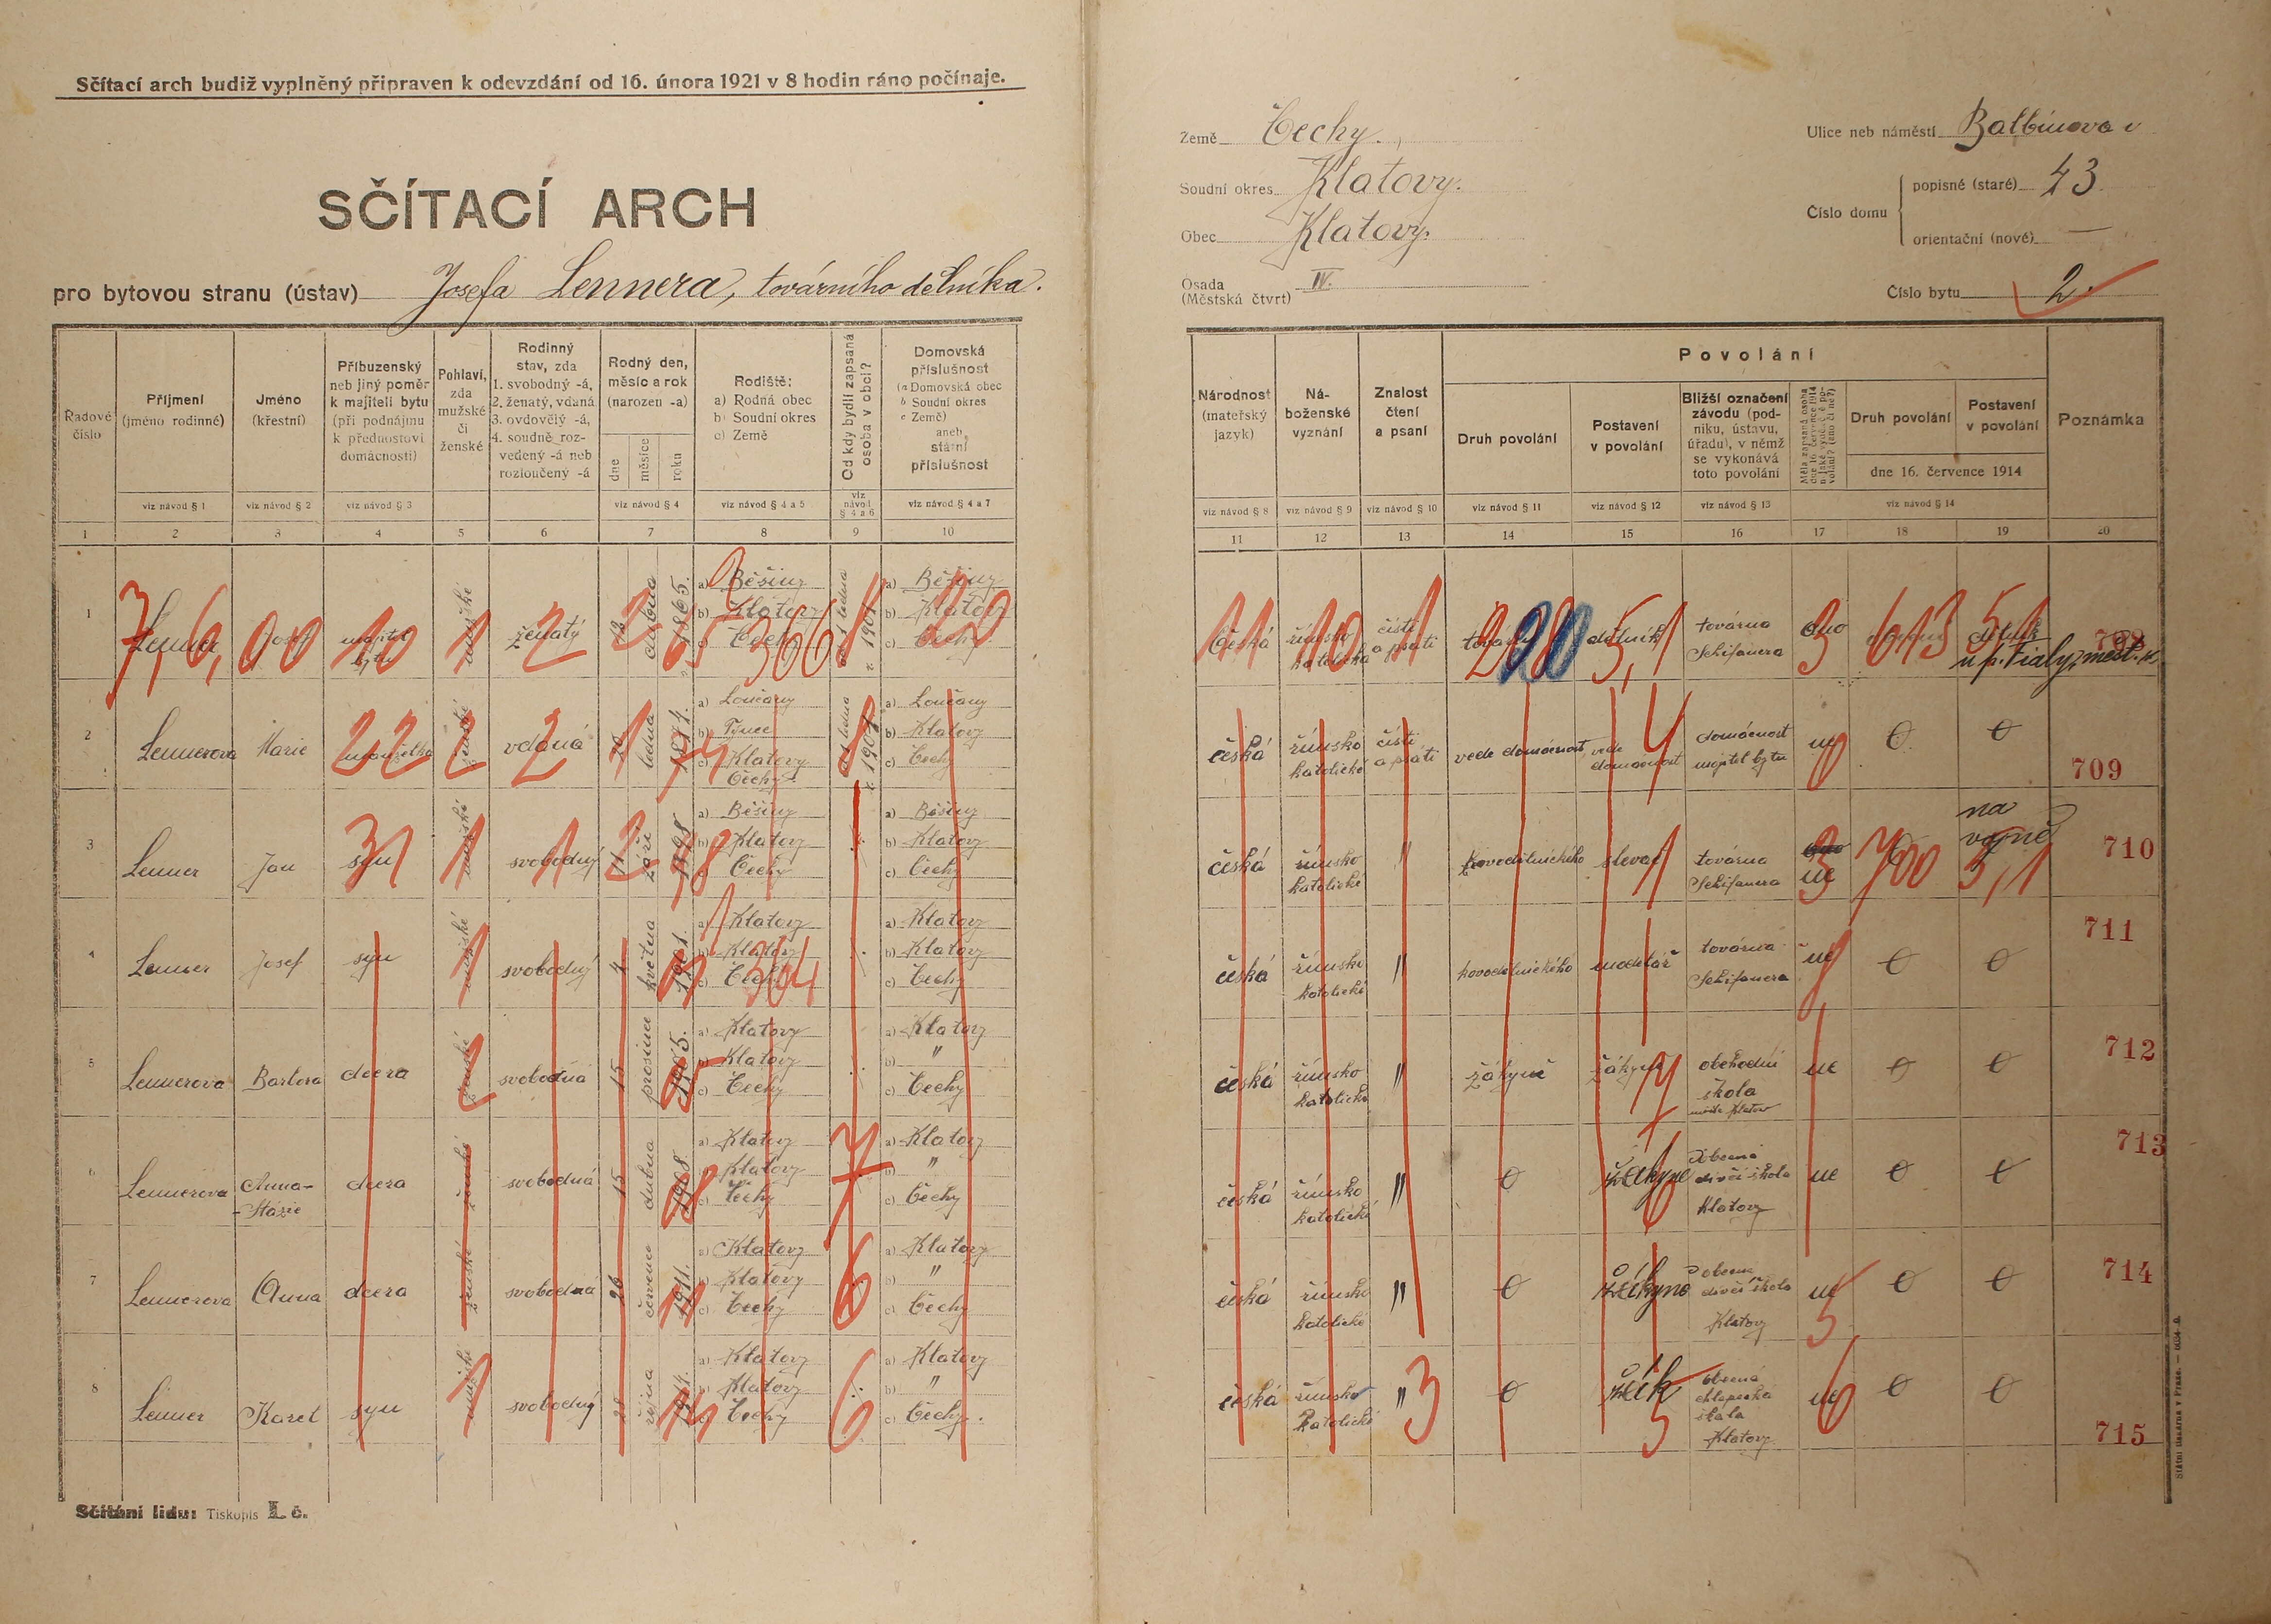 Sčítací arch budiž vyplněný připraven k odevzdání od 16. února 1921 v 8 hodin ráno počínaje.
SČÍTACÍ ARCH
pro bytovou stranu (ústav) Josefa Lennera, továrního dělníka.
Země Čechy.
Soudní okres Klatovy.
Obec Klatovy.
Osada
(Městská čtvrt) IV.
Ulice neb náměstí Balbinova
Číslo domu
popisné (staré) 43
orientační (nové) —
Číslo bytu 2
Řadové číslo
Příjmení (jméno rodinné)
Jméno (křestní)
Příbuzenský neb jiný poměr k majiteli bytu (při podnájmu k přednostovi domácnosti)
Pohlaví, zda mužské či ženské
Rodinný stav, zda 1. svobodný -á, 2. ženatý, vdaná 3. ovdovělý -á, 4. soudně rozvedený -á neb rozloučený -á
Rodný den, měsíc a rok (narozen -a)
dne měsíce roku
Rodiště: a) Rodná obec b) Soudní okres c) Země
Od kdy bydlí zapsaná osoba v obci?
Domovská příslušnost (a Domovská obec b Soudní okres c Země) aneb státní příslušnost
viz návod § 1
viz návod § 2
viz návod § 3
viz návod § 4
viz návod § 4 a 5
viz návod § 4 a 6
viz návod § 4 a 7
1 2 3 4 5 6 7 8 9 10
Národnost (mateřský jazyk)
Náboženské vyznání
Znalost čtení a psaní
Povolání
Druh povolání
Postavení v povolání
Bližší označení závodu (podniku, ústavu, úřadu), v němž se vykonává toto povolání
Druh povolání
Postavení v povolání
dne 16. července 1914
Poznámka
viz návod § 8
viz návod § 9
viz návod § 10
viz návod § 11
viz návod § 12
viz návod § 13
viz návod § 14
11 12 13 14 15 16 17 18 19 20
1 Lenner Josef majitel bytu mužské ženatý dubna 1865. a) Běšiny b) Klatovy c) Čechy od ledna r. 1901 a) Běšiny b) Klatovy c) Čechy
česká římsko katolická čísti a psáti dělník továrna Schifauera ano dělník
2 Lennerova Marie manželka ženské vdaná ledna 1874. a) Loučany b) Týnec c) Klatovy Čechy od ledna r. 1901 a) Loučany b) Klatovy c) Čechy
česká římsko katolické čísti a psáti vede domácnost vede domácnost domácnost majitel bytu ne 0 0 709
3 Lenner Jan syn mužské svobodný 11 září 1898 a) Běšiny b) Klatovy c) Čechy a) Běšiny b) Klatovy c) Čechy
česká římsko katolické " kovodělnického slevač továrna Schifauera ne na vojně 710
4 Lenner Josef syn mužské svobodný 4 května 1901. a) Klatovy b) Klatovy c) Čechy a) Klatovy b) Klatovy c) Čechy
česká římsko katolické " kovodělnického modelář továrna Schifauera ne 0 0 711
5 Lennerova Barbora dcera ženské svobodná 15 prosince 1905. a) Klatovy b) Klatovy c) Čechy a) Klatovy b) " c) Čechy
česká římsko katolické " žákyně žákyně obchodní škola ne 0 0 712
6 Lennerova Anna-Stázie dcera ženské svobodná 15 dubna 1908 a) Klatovy b) Klatovy c) Čechy a) Klatovy b) " c) Čechy
česká římsko katolické " 0 žákyně obecná dívčí škola Klatovy ne 0 0 713
7 Lennerova Anna dcera ženské svobodná 26 července 1911. a) Klatovy b) Klatovy c) Čechy a) Klatovy b) " c) Čechy
česká římsko katolické " 0 žákyně obecná dívčí škola Klatovy ne 0 0 714
8 Lenner Karel syn mužské svobodný 28 října 1914. a) Klatovy b) Klatovy c) Čechy a) Klatovy b) " c) Čechy.
česká římsko katolické " 0 žák obecná chlapecká škola Klatovy ne 0 0 715
Sčítání lidu: Tiskopis I. č.